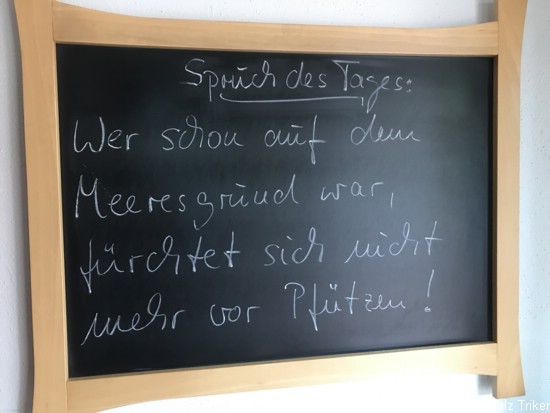 Spruch des Tages:
Wer schon auf dem
Meeresgrund war,
fürchtet sich nicht
mehr vor Pfützen!
lz Triker